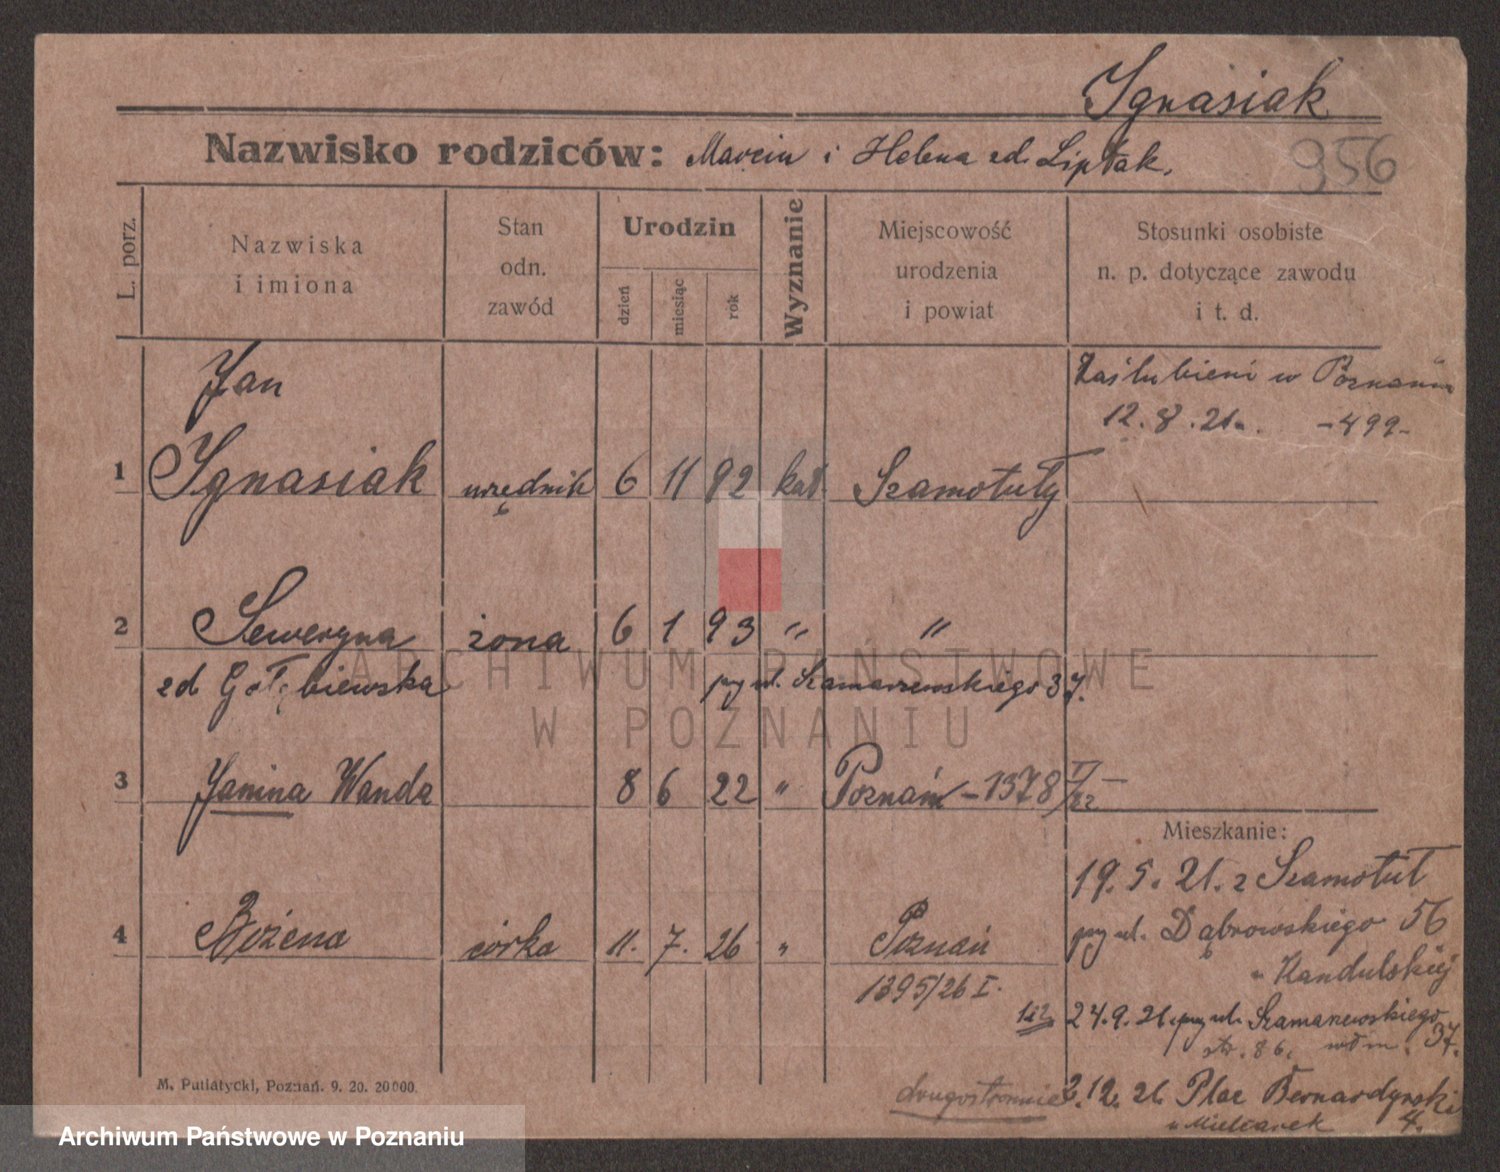 Ignasiak
Nazwisko rodziców: Marcin i Helena zd. Liptak.
956
L. porz.
Nazwiska
i imiona
Stan
odn.
zawód
Urodzin
dzień
miesiąc
rok
Wyznanie
Miejscowość
urodzenia
i powiat
Stosunki osobiste
n. p. dotyczące zawodu
i t. d.
Zaślubieni w Poznaniu
12.8.21. -499-
Jan
1 Ignasiak urzędnik 6 11 92 kat Szamotuły
2 Seweryna żona 6 1 93 " "
zd Gołębiewska przy ul. Szamarzewskiego 37.
3 Janina Wanda 8 6 22 " Poznań - 1378 II/22
Mieszkanie:
19.5.21. z Szamotuł
przy ul. Dąbrowskiego 56
" Kandulskiej
4 Bożena córka 11. 7. 26 " Poznań
1395/26 I.
24.9.21. przy ul. Szamarzewskiego
str. 86. 37.
drugostronnie 2.12.21. Plac Bernardyński
u Mielcarek 4.
M. Putiatycki, Poznań. 9. 20. 20000.
ARCHIWUM PAŃSTWOWE
W POZNANIU
Archiwum Państwowe w Poznaniu